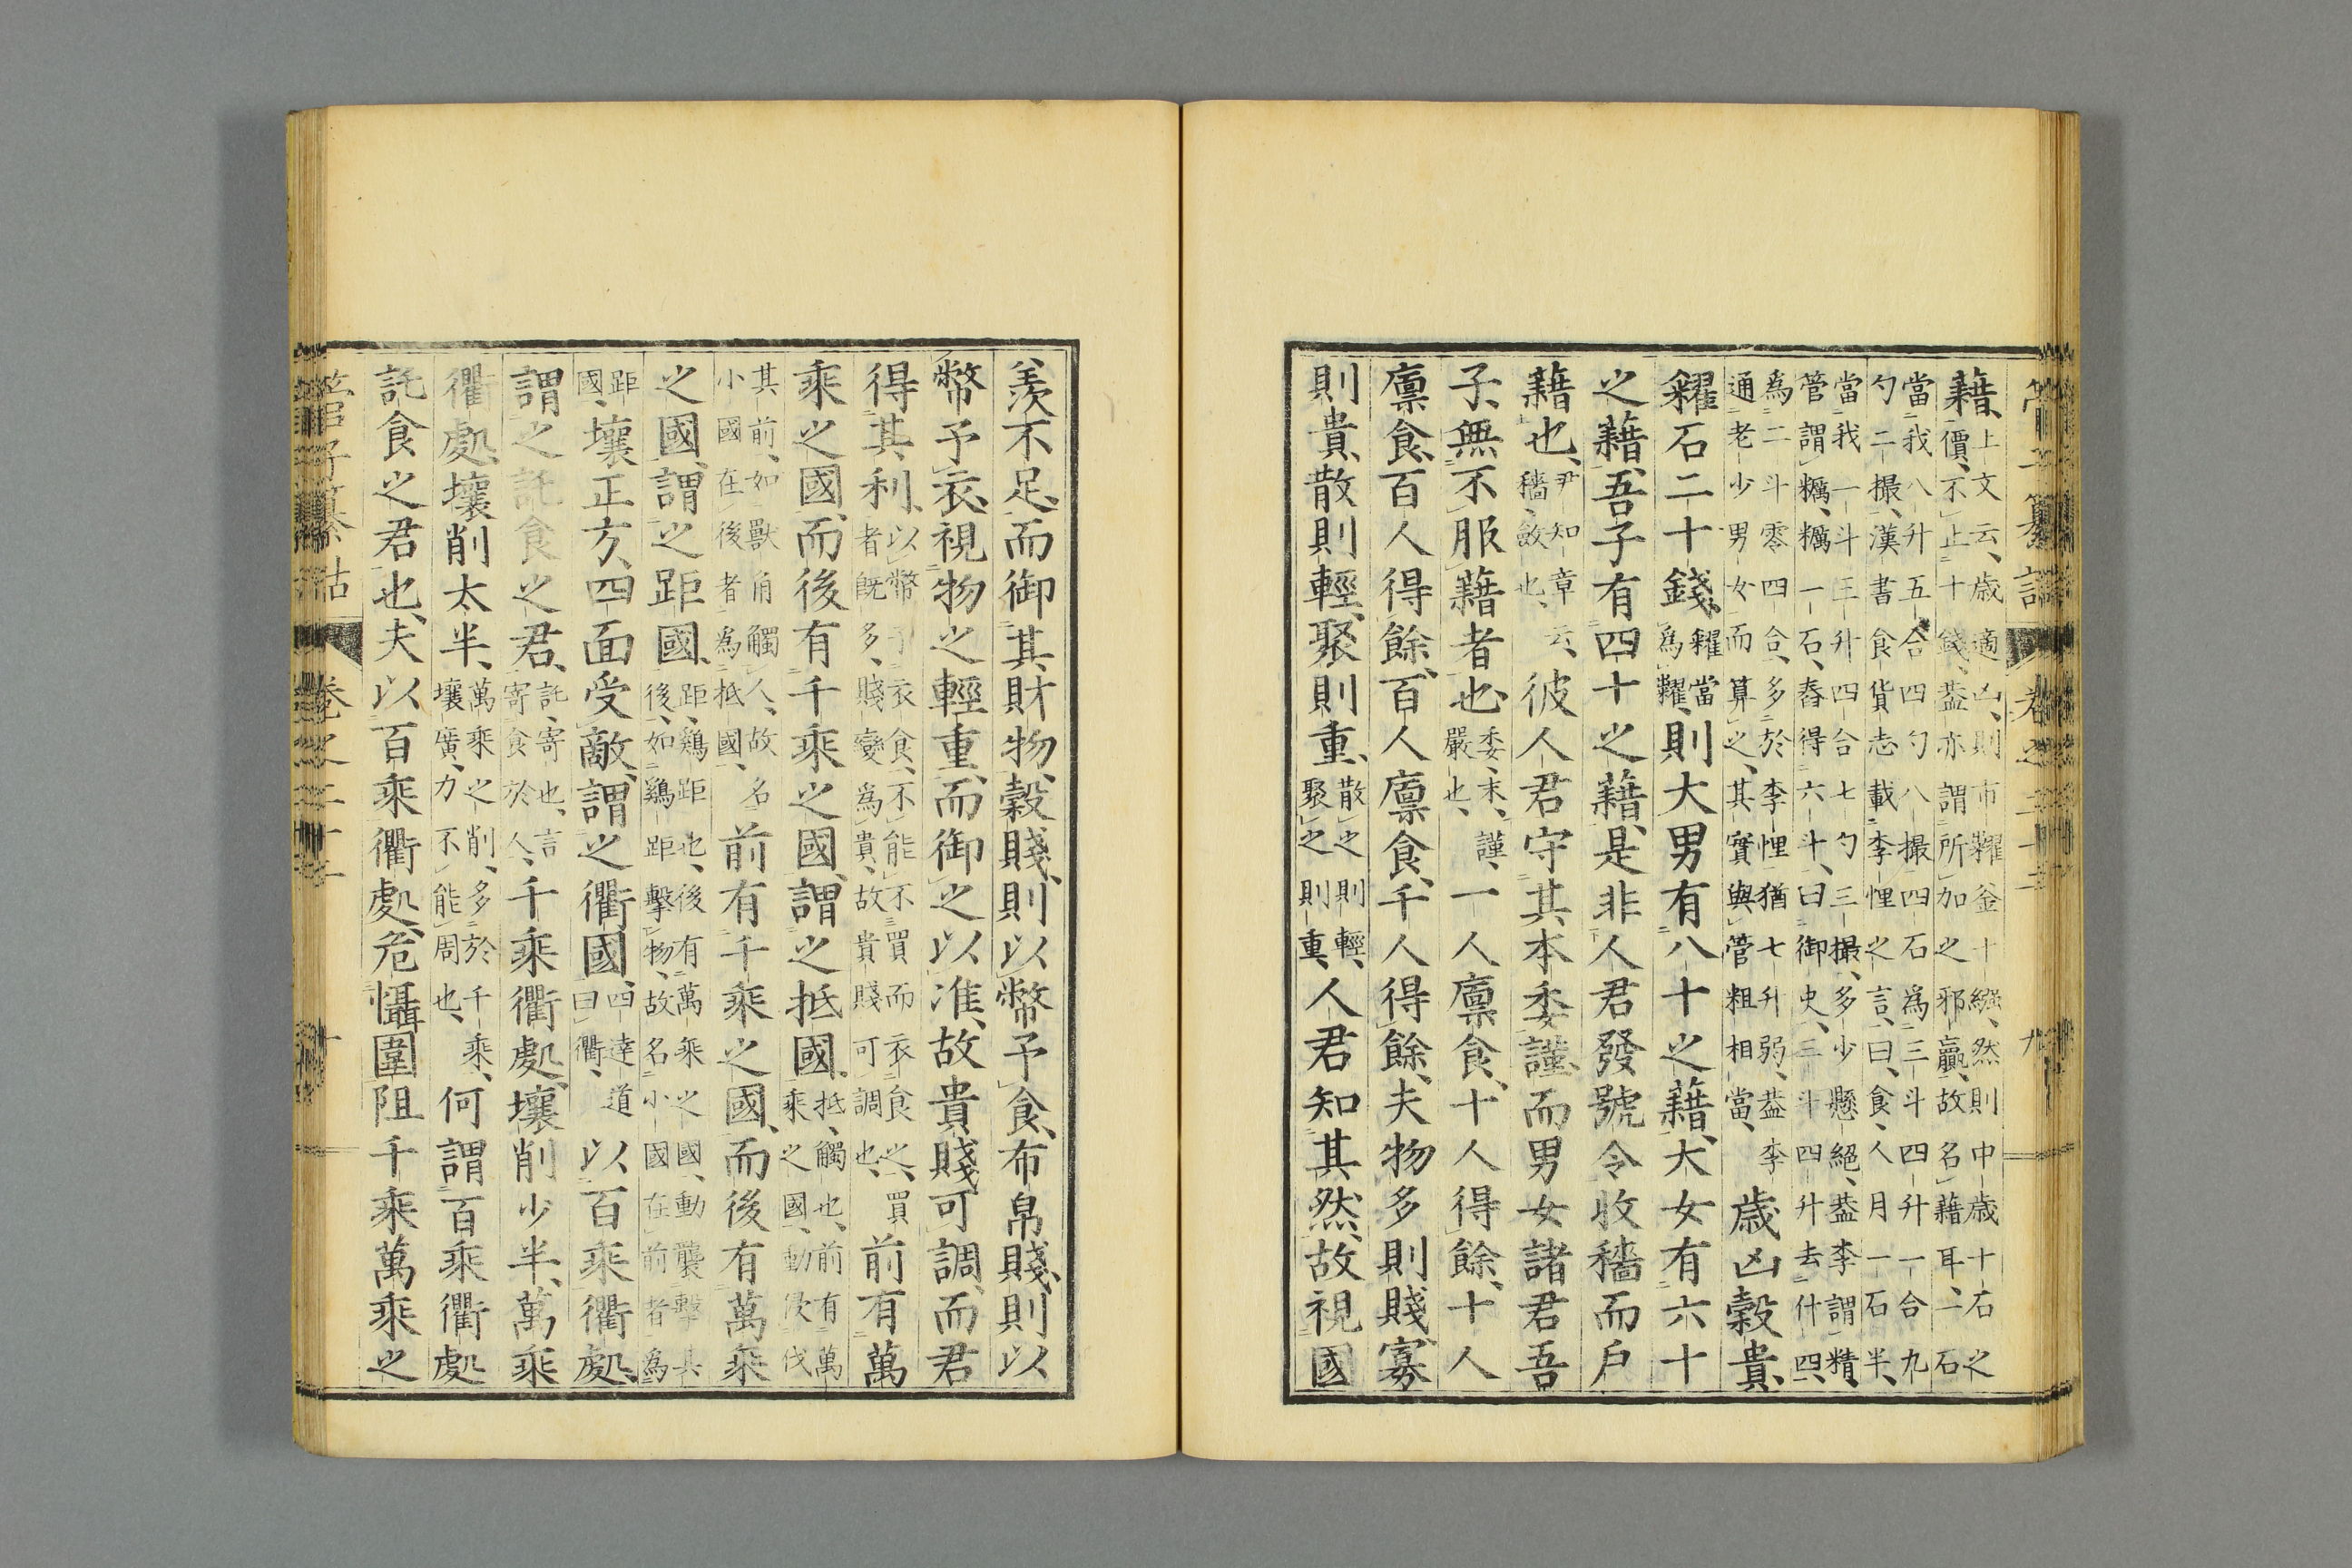 管子纂詁 卷之二十二 九
藉、上文云、歲適凶、則市糶釜十繦、然則中歲十石之價、不止十錢、葢亦謂所加之邪贏、故名藉耳、一石
當我八升五合四勺八撮四石為三斗四升一合九勺二撮、漢書食貨志載李悝之言、曰、食、人月一石半、
當我一斗三升四合七勺三撮、多少懸絕、葢李謂精、管謂糲、糲一石、舂得六斗、曰御史、三斗四升去什四、
為二斗零四合、多於李悝猶七升弱、葢李通老少男女而算之、其實與管粗相當、歲凶穀貴、
糴石二十錢、糴當為糶、則大男有八十之藉、大女有六十
之藉、吾子有四十之藉、是非人君發號令收穡而戶
藉也、尹知章云、穡、斂也、彼人君守其本委謹、而男女諸君吾
子、無不服藉者也、委、末、謹、嚴也、一人廩食、十人得餘、十人
廩食、百人得餘、百人廩食、千人得餘、夫物多則賤、寡
則貴、散則輕、聚則重、散之則輕、聚之則重、人君知其然、故視國
羨不足、而御其財物、穀賤、則以幣予食、布帛賤、則以
幣予衣、視物之輕重、而御之以准、故貴賤可調、而君
得其利、以幣予衣食、不能不買而衣食之、買者既多、賤變為貴、故貴賤可調也、前有萬
乘之國、而後有千乘之國、謂之抵國、抵、觸也、前有萬乘之國、動侵伐
其前、如獸角觸人、故名小國在後者為抵國、前有千乘之國、而後有萬乘
之國、謂之距國、距、鷄距也、後有萬乘之國、動襲擊其後、如鷄距擊物、故名小國在前者為
距國、壤正方、四面受敵、謂之衢國、四達道曰衢、以百乘衢處、
謂之託食之君、託、寄也、言寄食於人、千乘衢處、壤削少半、萬乘
衢處、壤削太半、萬乘之削、多於千乘、壤廣、力不能周也、何謂百乘衢處
託食之君也、夫以百乘衢處、危懾圍阻千乘萬乘之
管子纂詁 卷之二十二 十